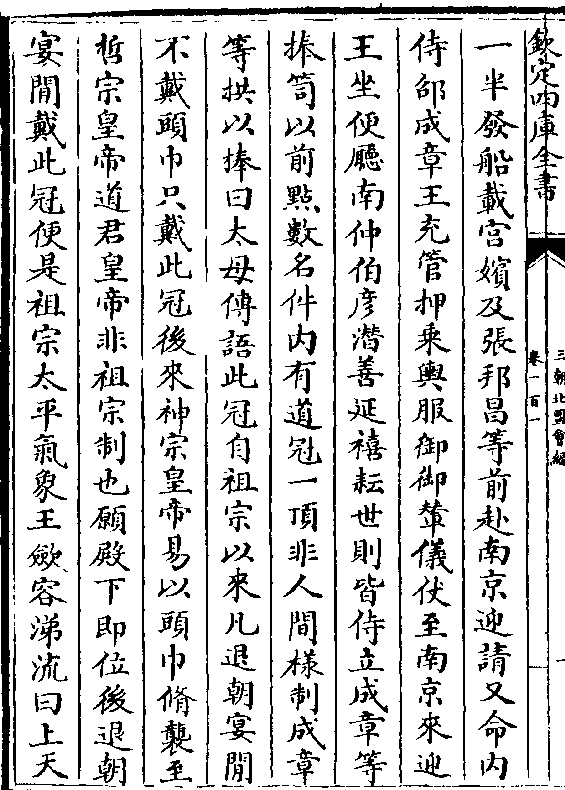 欽定四庫全書
三朝北盟會編
卷一百一
一
一半發船載宮嬪及張邦昌等前赴南京迎請又命内
侍邵成章王充管押乘輿服御御輦儀仗至南京來迎
王坐便廳南仲伯彦潛善延禧耘世則皆侍立成章等
捧笥以前點數名件内有道冠一頂非人間様制成章
等拱以捧曰太母傳語此冠自祖宗以來凡退朝宴閒
不戴頭巾只戴此冠後來神宗皇帝易以頭巾脩襲至
哲宗皇帝道君皇帝非祖宗制也願殿下即位後退朝
宴閒戴此冠便是祖宗太平氣象王斂容涕流曰上天